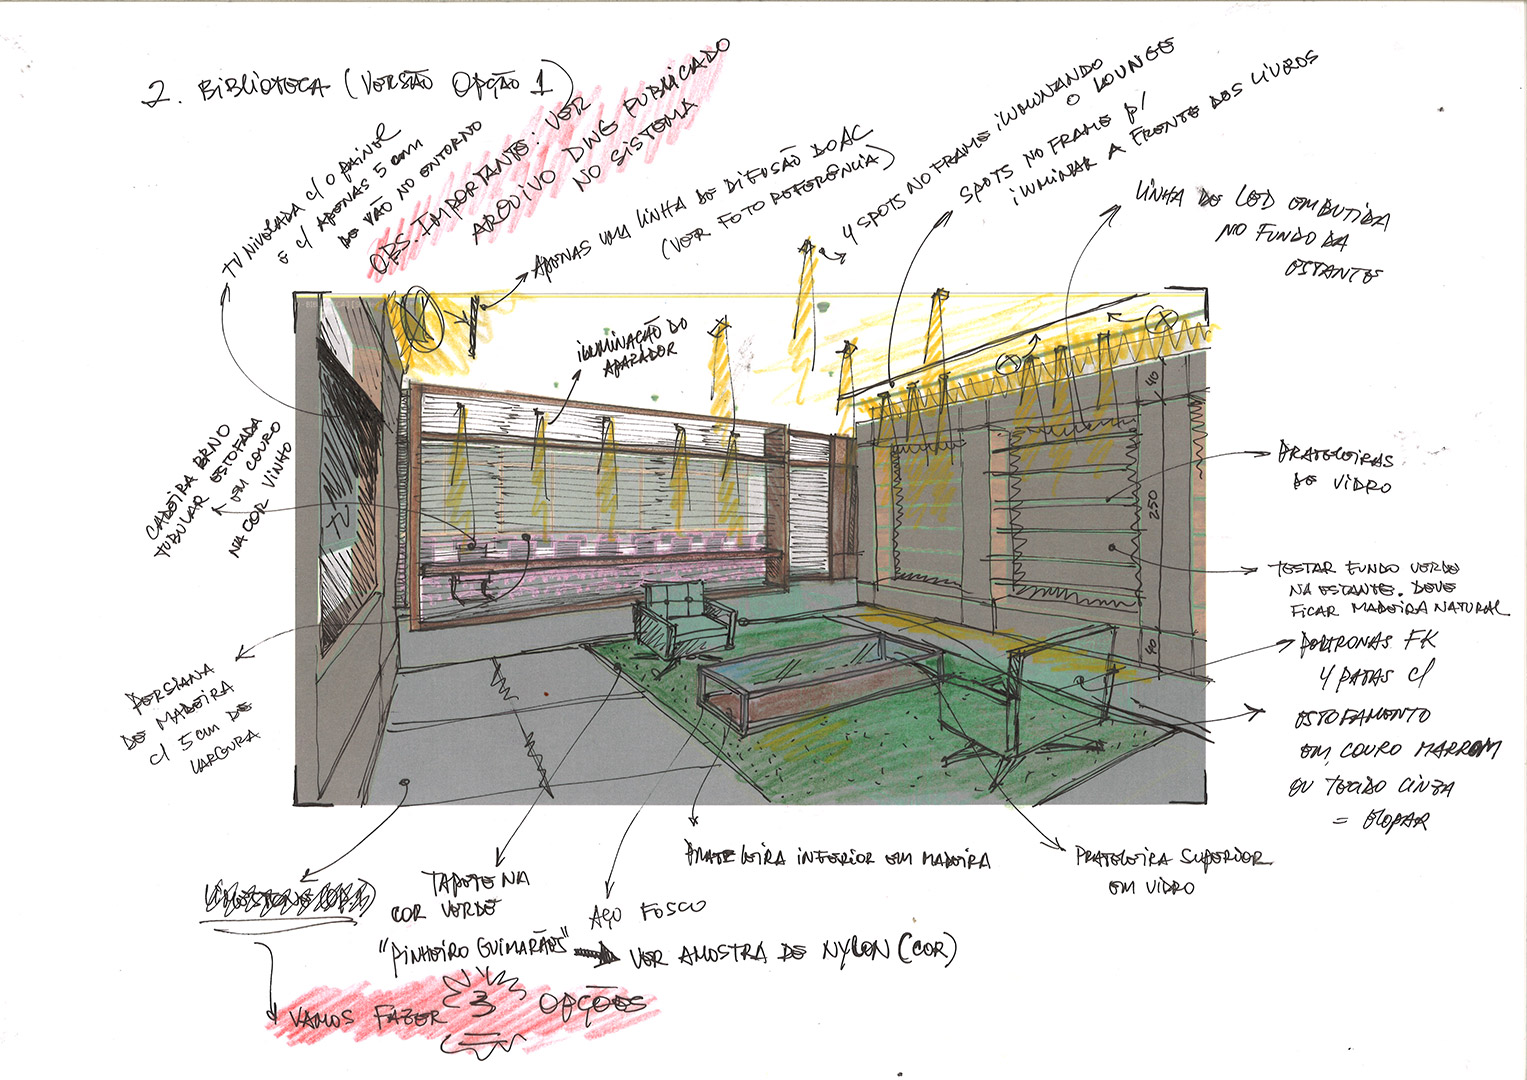 2. BIBLIOTECA (VERSÃO OPÇÃO 1)
OBS. IMPORTANTE: VER
ARQUIVO DWG PUBLICADO
NO SISTEMA
TV NIVELADA C/ O PAINEL
E C/ APENAS 5 cm
DE VÃO NO ENTORNO
APENAS UMA LINHA DE DIFUSÃO DO AC
(VER FOTO REFERÊNCIA)
4 SPOTS NO FRAME ILUMINANDO
O LOUNGE
SPOTS NO FRAME P/
ILUMINAR A FRENTE DOS LIVROS
LINHA DE LED EMBUTIDA
NO FUNDO DA
ESTANTE
ILUMINAÇÃO DO
APARADOR
CADEIRA BRNO
TUBULAR ESTOFADA
EM COURO
NA COR VINHO
TV
40
250
40
PRATELEIRAS
DE VIDRO
TESTAR FUNDO VERDE
NA ESTANTE. DEVE
FICAR MADEIRA NATURAL
POLTRONAS FK
4 PATAS C/
ESTOFAMENTO
EM COURO MARROM
OU TECIDO CINZA
PERSIANA
DE MADEIRA
C/ 5 cm DE
LARGURA
PRATELEIRA INFERIOR EM MADEIRA
PRATELEIRA SUPERIOR
EM VIDRO
TAPETE NA
COR VERDE
"PINHEIRO GUIMARÃES"
VER AMOSTRA DE NYLON (COR)
AÇO FOSCO
VAMOS FAZER 3 OPÇÕES